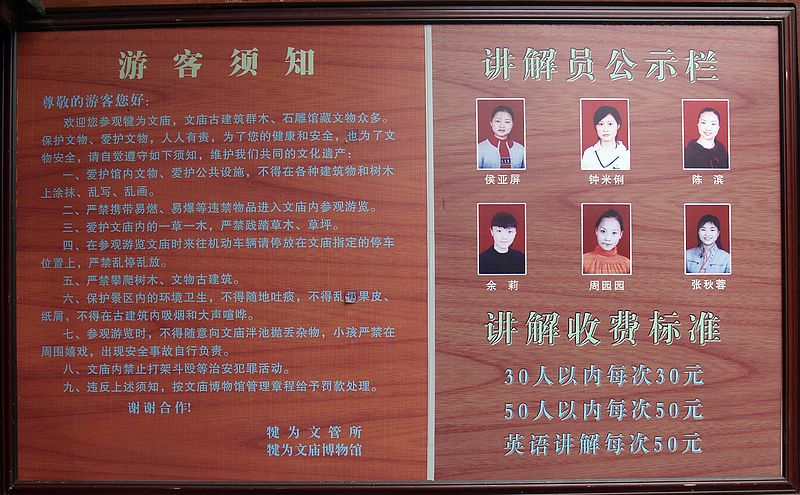 游客须知
尊敬的游客您好：
欢迎您参观犍为文庙，文庙古建筑群木、石雕馆藏文物众多。
保护文物、爱护文物，人人有责，为了您的健康和安全，也为了文
物安全，请自觉遵守如下须知，维护我们共同的文化遗产：
一、爱护馆内文物、爱护公共设施，不得在各种建筑物和树木
上涂抹、乱写、乱画。
二、严禁携带易燃、易爆等违禁物品进入文庙内参观游览。
三、爱护文庙内的一草一木，严禁践踏草木、草坪。
四、在参观游览文庙时来往机动车辆请停放在文庙指定的停车
位置上，严禁乱停乱放。
五、严禁攀爬树木、文物古建筑。
六、保护景区内的环境卫生，不得随地吐痰，不得乱果皮、
纸屑，不得在古建筑内吸烟和大声喧哗。
七、参观游览时，不得随意向文庙泮池抛丢杂物，小孩严禁在
周围嬉戏，出现安全事故自行负责。
八、文庙内禁止打架斗殴等治安犯罪活动。
九、违反上述须知，按文庙博物馆管理章程给予罚款处理。
谢谢合作！
犍为文管所
犍为文庙博物馆
讲解员公示栏
侯亚屏 钟米俐 陈滨
余莉 周园园 张秋蓉
讲解收费标准
30人以内每次30元
50人以内每次50元
英语讲解每次50元